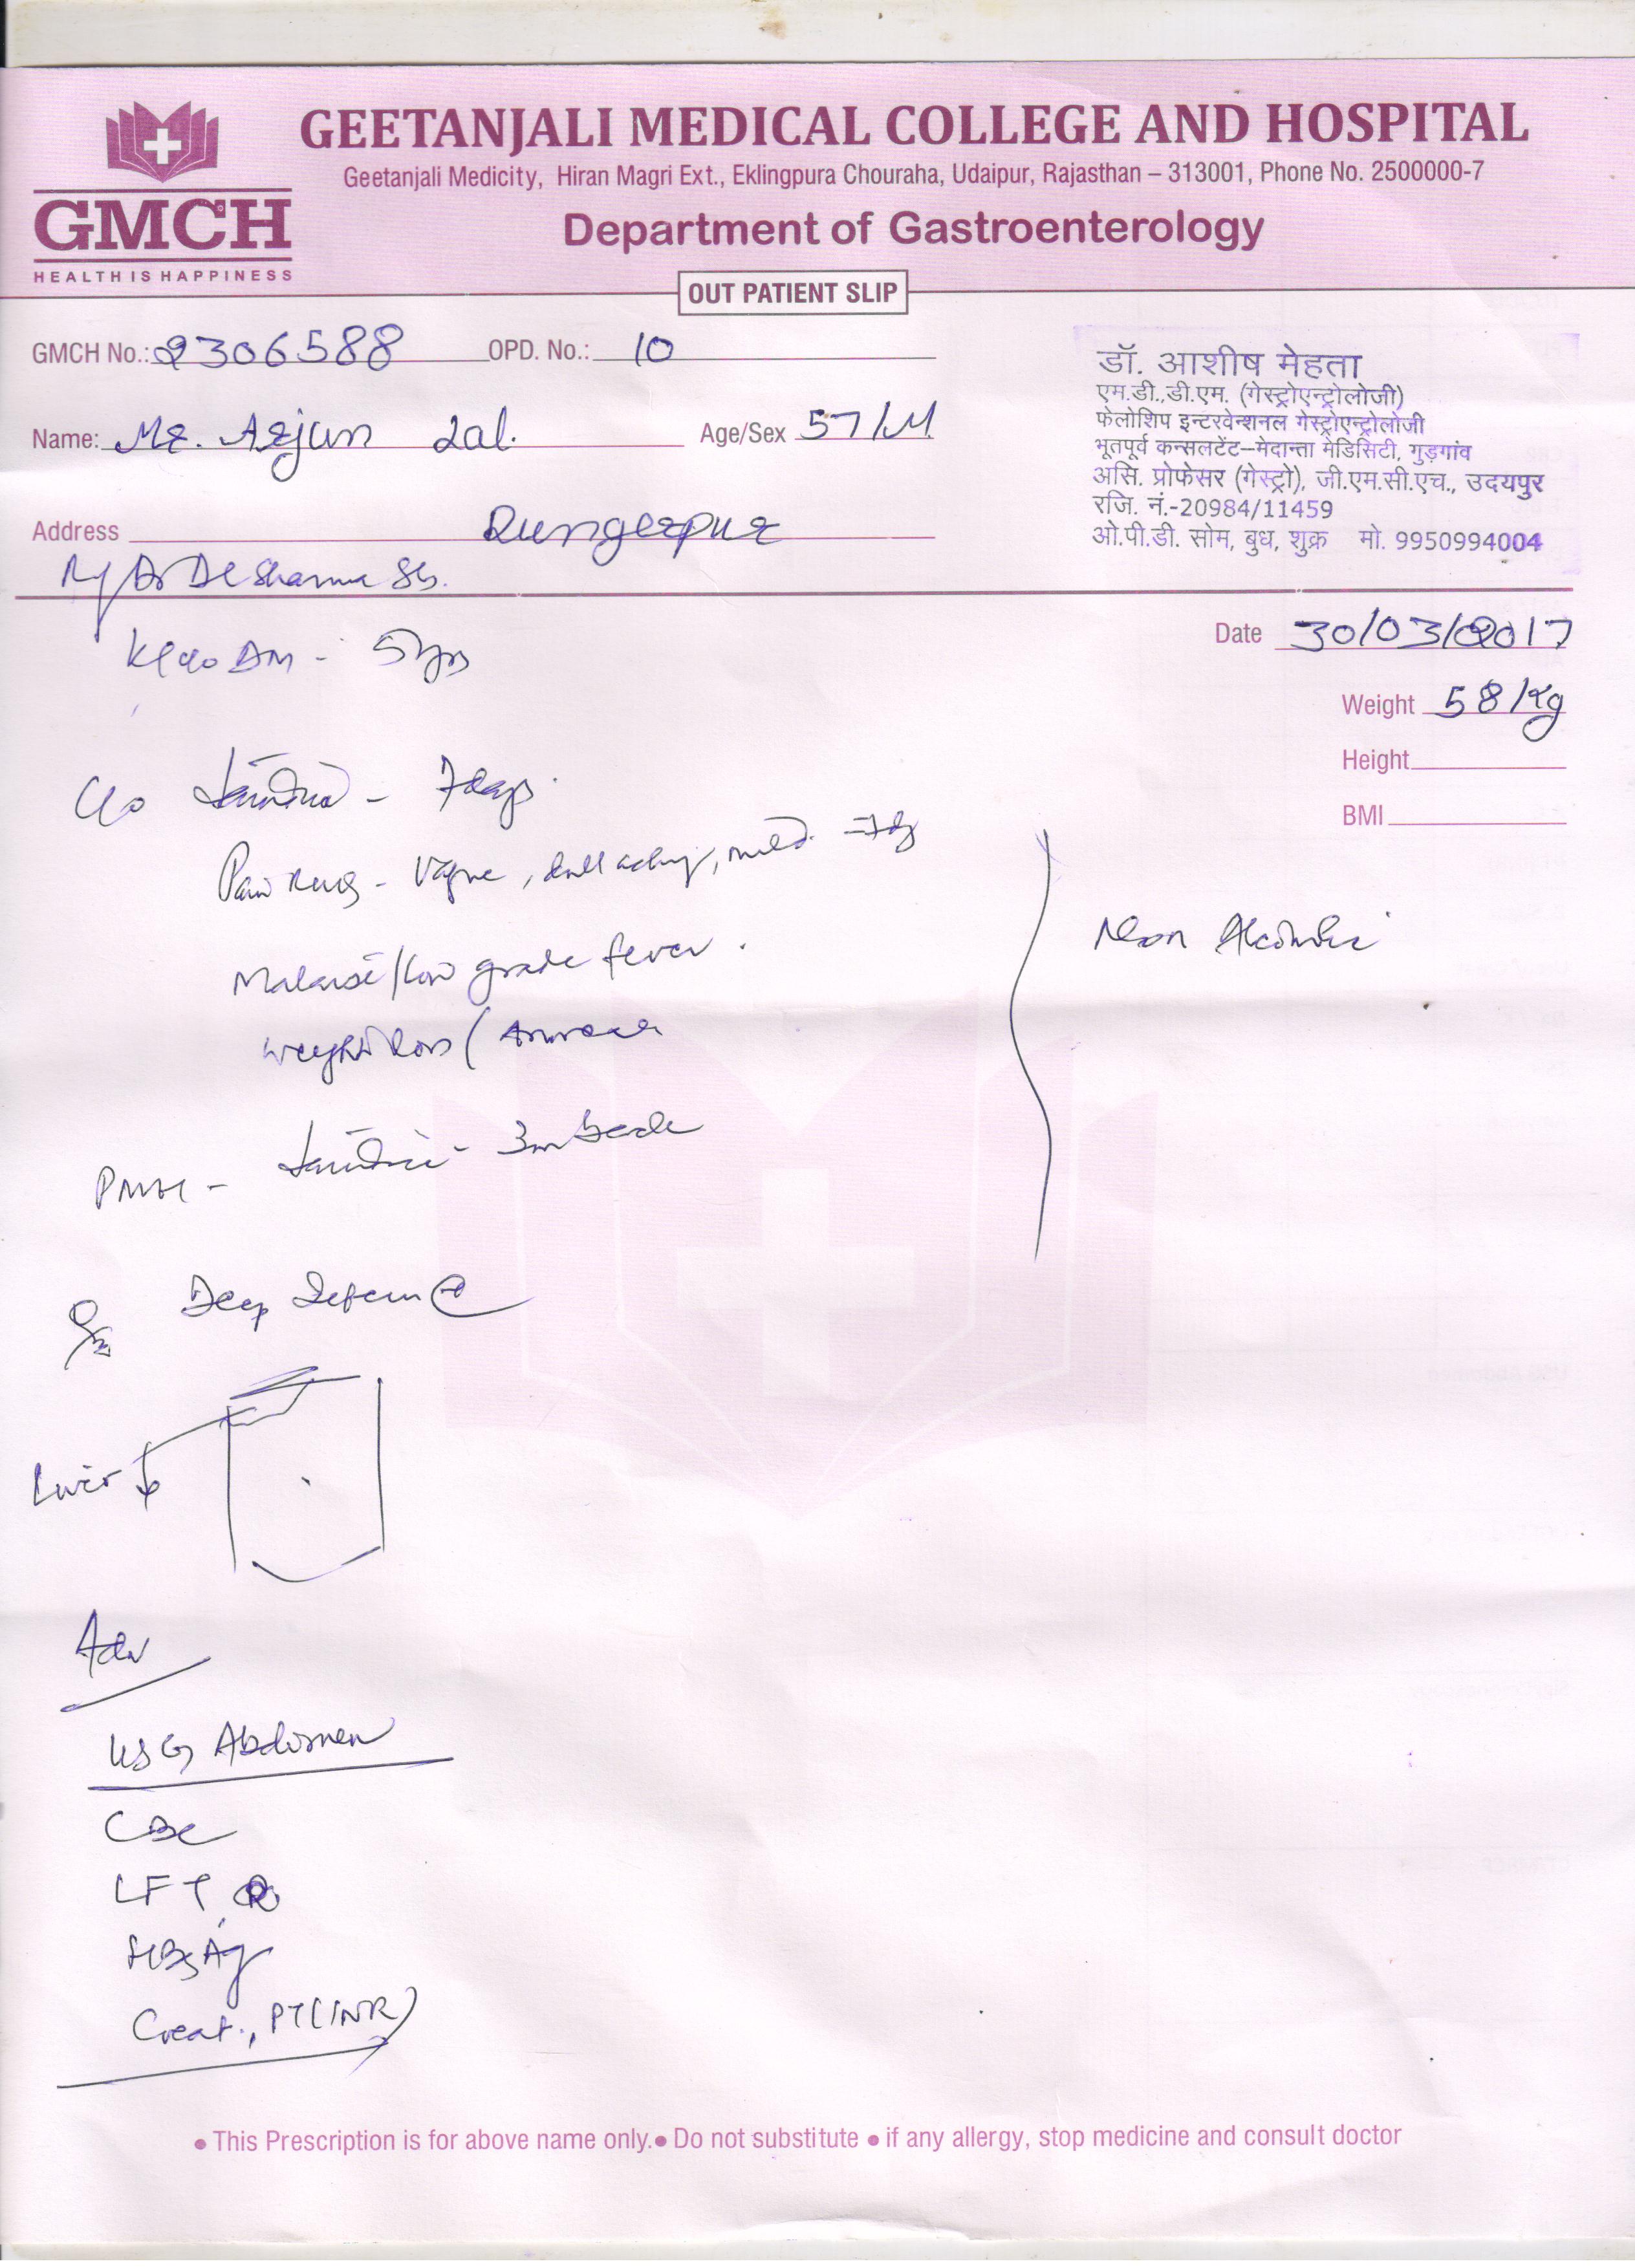 GEETANJALI MEDICAL COLLEGE AND HOSPITAL
Geetanjali Medicity, Hiran Magri Ext., Eklingpura Chouraha, Udaipur, Rajasthan – 313001, Phone No. 2500000-7
GMCH
HEALTH IS HAPPINESS
Department of Gastroenterology
OUT PATIENT SLIP
GMCH No.: 2306588 OPD. No.: 10
Name: Mr. Arjun Lal. Age/Sex 57/M
Address Dungerpur
डॉ. आशीष मेहता
एम.डी.,डी.एम. (गेस्ट्रोएन्ट्रोलोजी)
फेलोशिप इन्टरवेन्शनल गेस्ट्रोएन्ट्रोलोजी
भूतपूर्व कन्सलटेंट–मेदान्ता मेडिसिटी, गुड़गांव
असि. प्रोफेसर (गेस्ट्रो), जी.एम.सी.एच., उदयपुर
रजि. नं.-20984/11459
ओ.पी.डी. सोम, बुध, शुक्र मो. 9950994004
Dr Sharma
Date 30/03/2017
K/c/o DM - 5 yrs
Weight 58/Kg
Height
BMI
C/o Jaundice - 7 days.
Pain RUQ - Vague, dull aching, mild
Malaise/low grade fever.
Weight loss / Anorexia
Non Alcoholic
Jaundice - 3m back
Deep
Liver
Adv
USG Abdomen
CBC
LFT
HBsAg
Creat., PT(INR)
• This Prescription is for above name only. • Do not substitute • if any allergy, stop medicine and consult doctor